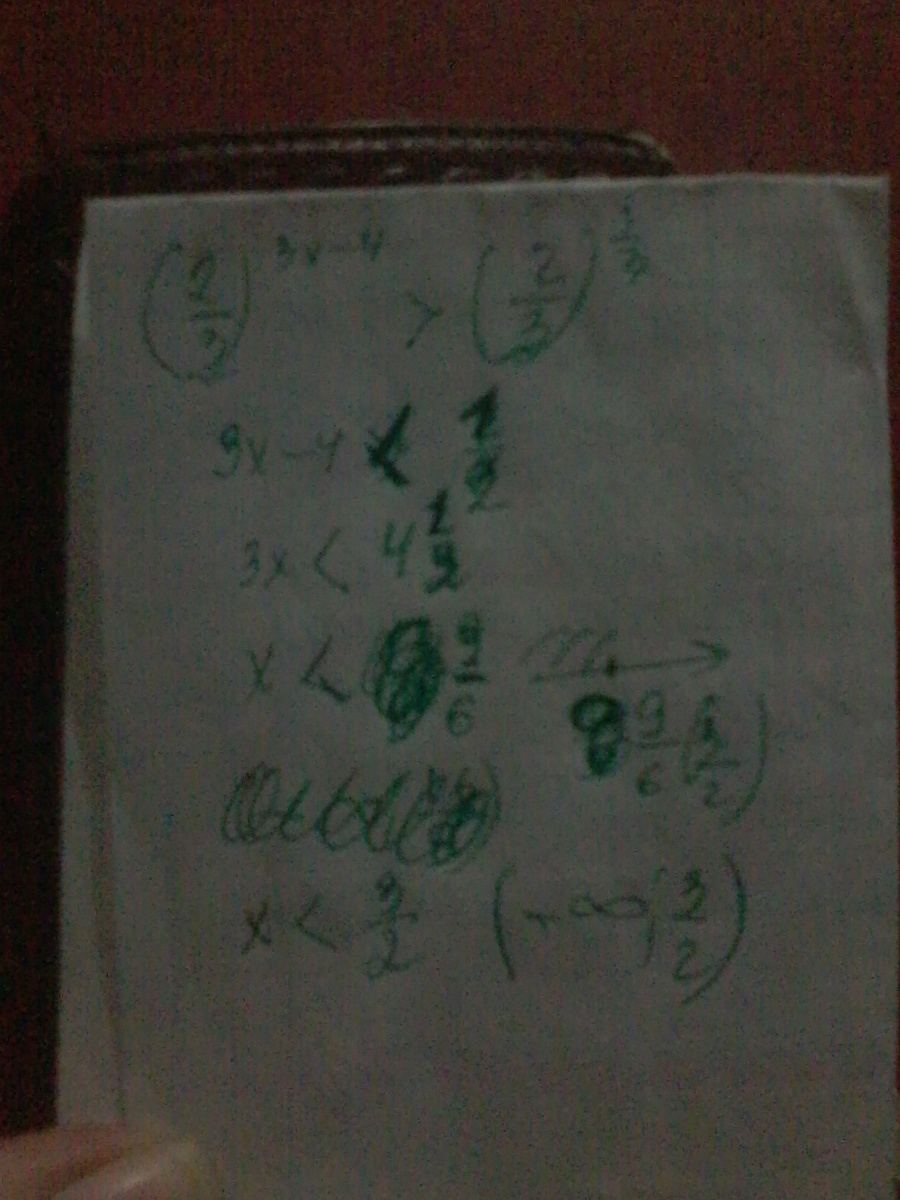 (2/3)^(3x-4) > (2/3)^(1/3)
3x-4 < 1/2
3x < 4 1/2
x < 9/6
9/6 (3/2)
x < 3/2 (-∞; 3/2)